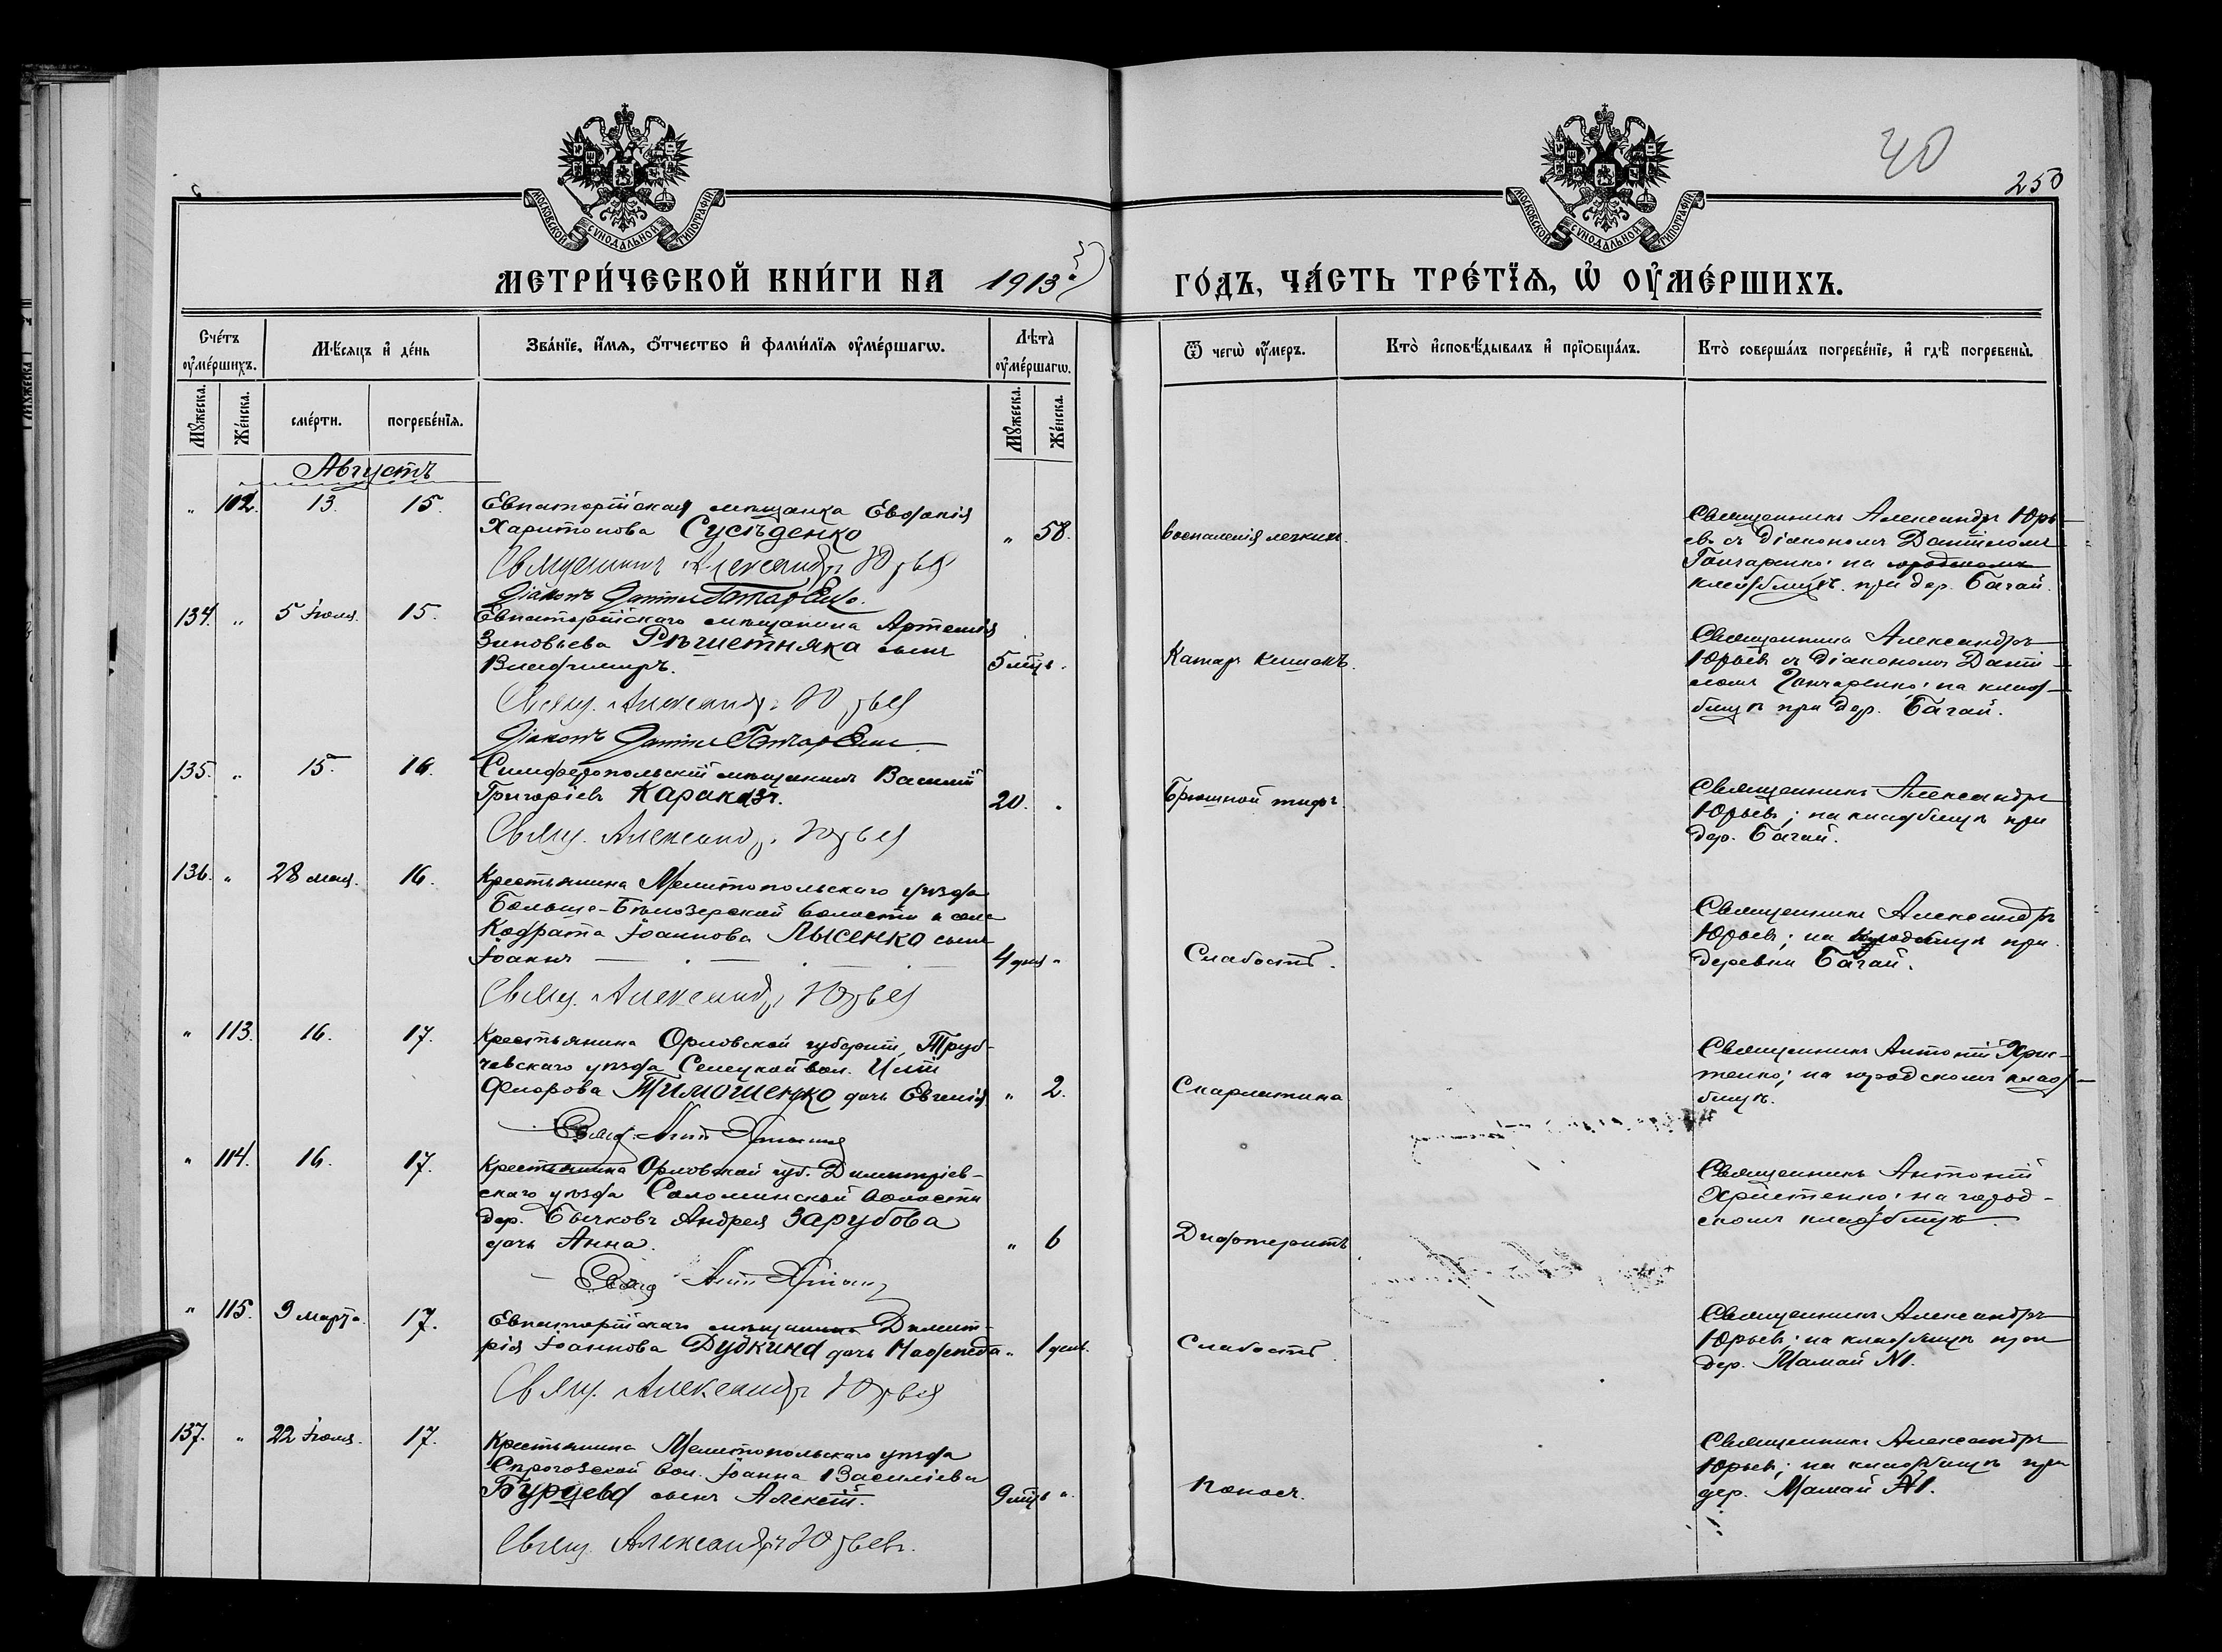 40
250
МОСКОВСКОЙ СѴНОДАЛЬНОЙ ТИПОГРАФІИ
МОСКОВСКОЙ СѴНОДАЛЬНОЙ ТИПОГРАФІИ
МЕТРИ́ЧЕСКОЙ КНИ́ГИ НА 1913 ГО́ДЪ, ЧА́СТЬ ТРЕ́ТЇѦ, Ѡ҆ ОУ҆МЕ́РШИХЪ.
Сче́тъ оу҆ме́ршихъ.
Мѣ́сяцъ и҆ де́нь
Зва́нїе, и҆́мѧ, ѻ҆́тчество и҆ фами́лїѧ оу҆ме́ршагѡ.
Лѣта̀ оу҆ме́ршагѡ.
Ѿ чегѡ̀ оу҆́меръ.
Кто̀ и҆сповѣ́дывалъ и҆ прїѡбща́лъ.
Кто̀ соверша́лъ погребе́нїе, и҆ гдѣ̀ погребены̀.
Мꙋ́жеска.
Же́нска.
сме́рти.
погребе́нїѧ.
Мꙋ́жеска.
Же́нска.
Августъ
" 112. 13. 15. Евпаторійская мѣщанка Евфанія
Харитонова Сусѣденко " 58.
Священникъ Александръ Юрьев
Діаконъ Даніилъ Гончаренко.
воспаленія легкихъ.
Священникъ Александръ Юрь-
евъ съ діакономъ Даніиломъ
Гончаренко; на
кладбищѣ при дер. Багай.
134. " 5 Іюля. 15. Евпаторійскаго мѣщанина Артемія
Зиновьева Рѣшетняка сынъ
Владимиръ. 5 мѣс.
Свящ. Александръ Юрьев
Діаконъ Даніилъ Гончаренко
Катар кишокъ.
Священника Александръ
Юрьевъ съ діакономъ Даніи-
ломъ Гончаренко; на клад-
бищѣ при дер. Багай.
135. " 15. 16. Симферопольскій мѣщанинъ Василій
Григоріевъ Каракозъ. 20. "
Свящ. Александръ Юрьев
Брюшной тифъ.
Священникъ Александръ
Юрьевъ; на кладбищѣ при
дер. Багай.
136. " 28 мая. 16. Крестьянина Мелитопольскаго уѣзда
Больше-Бѣлозерской волости и села
Кодрата Іоаннова Лысенко сынъ
Іоаннъ 4 дня "
Свящ. Александръ Юрьев
Слабость.
Священникъ Александръ
Юрьевъ; на кладбищѣ при
деревни Багай.
" 113. 16. 17. Крестьянина Орловской губерніи, Труб-
чевскаго уѣзда Селецкой вол.
Флорова Тимошенко дочь Евгенія " 2.
Скарлатина
Священникъ Антоній Хрис-
тенко; на городскомъ клад-
бищѣ.
" 114. 16. 17. Крестьянина Орловской губ. Димитріев-
скаго уѣзда Соломинской волости
дер. Бычковъ Андрея Зарубова
дочь Анна. " 6
Дифтеритъ
Священникъ Антоній
Христенко; на город-
скомъ кладбищѣ.
" 115. 9 марта. 17. Евпаторійскаго мѣщанина Димит-
рія Іоаннова Дудкина дочь Надежда " 1 день.
Свящ. Александръ Юрьев
Слабость.
Священникъ Александръ
Юрьевъ; на кладбищѣ при
дер. Мамай №1.
137. " 22 Іюля. 17. Крестьянина Мелитопольскаго уѣзда
вол. Іоанна Василіева
Бурцева сынъ Алексій. 9 мѣс "
Свящ. Александръ Юрьевъ.
Поносъ.
Священникъ Александръ
Юрьевъ; на кладбищѣ при
дер. Мамай №1.